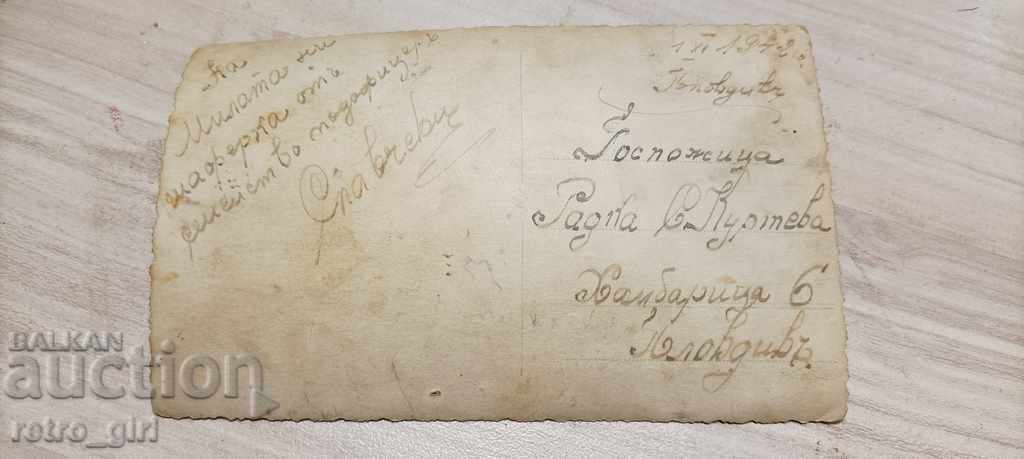 На
Милата ни
шаферка отъ
семейство подофицеръ
Славчеви
1 XI 1942 г.
Пловдивъ
Госпожица
Радка С. Куртева
Хамбарица 6
Пловдивъ
BALKAN
auction
retro_girl